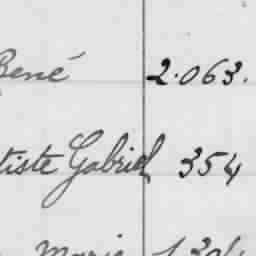 René 2.063.
tiste Gabriel 354
Marie